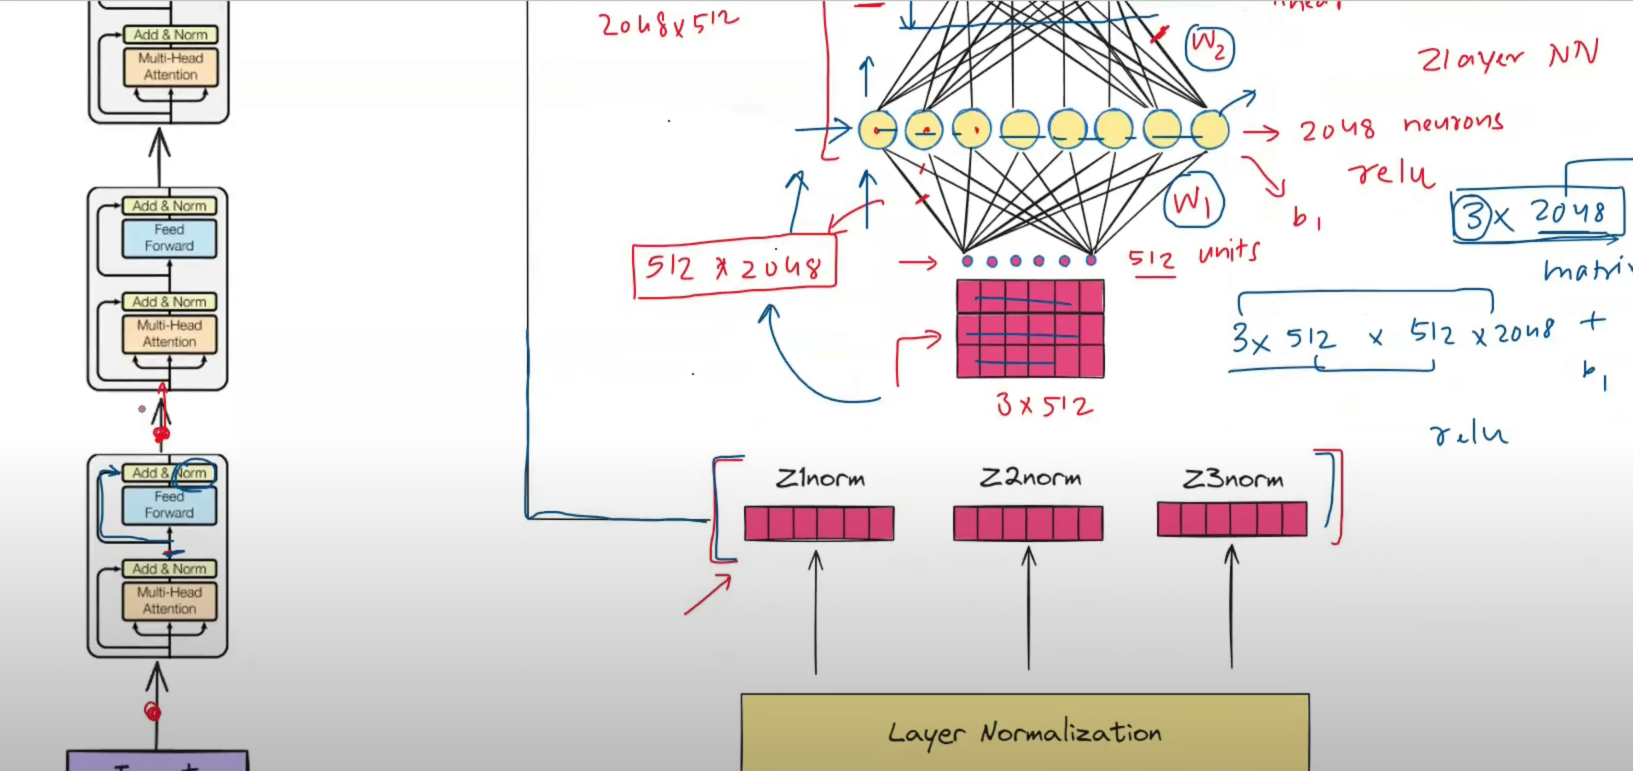 Add & Norm
Multi-Head
Attention
Add & Norm
Feed
Forward
Add & Norm
Multi-Head
Attention
Add & Norm
Feed
Forward
Add & Norm
Multi-Head
Attention
2048x512
W2
2layer NN
2048 neurons
relu
W1
b1
3 x 2048
512 x 2048
512 units
3x 512 x 512 x 2048 +
b1
3 x 512
relu
Z1norm
Z2norm
Z3norm
Layer Normalization